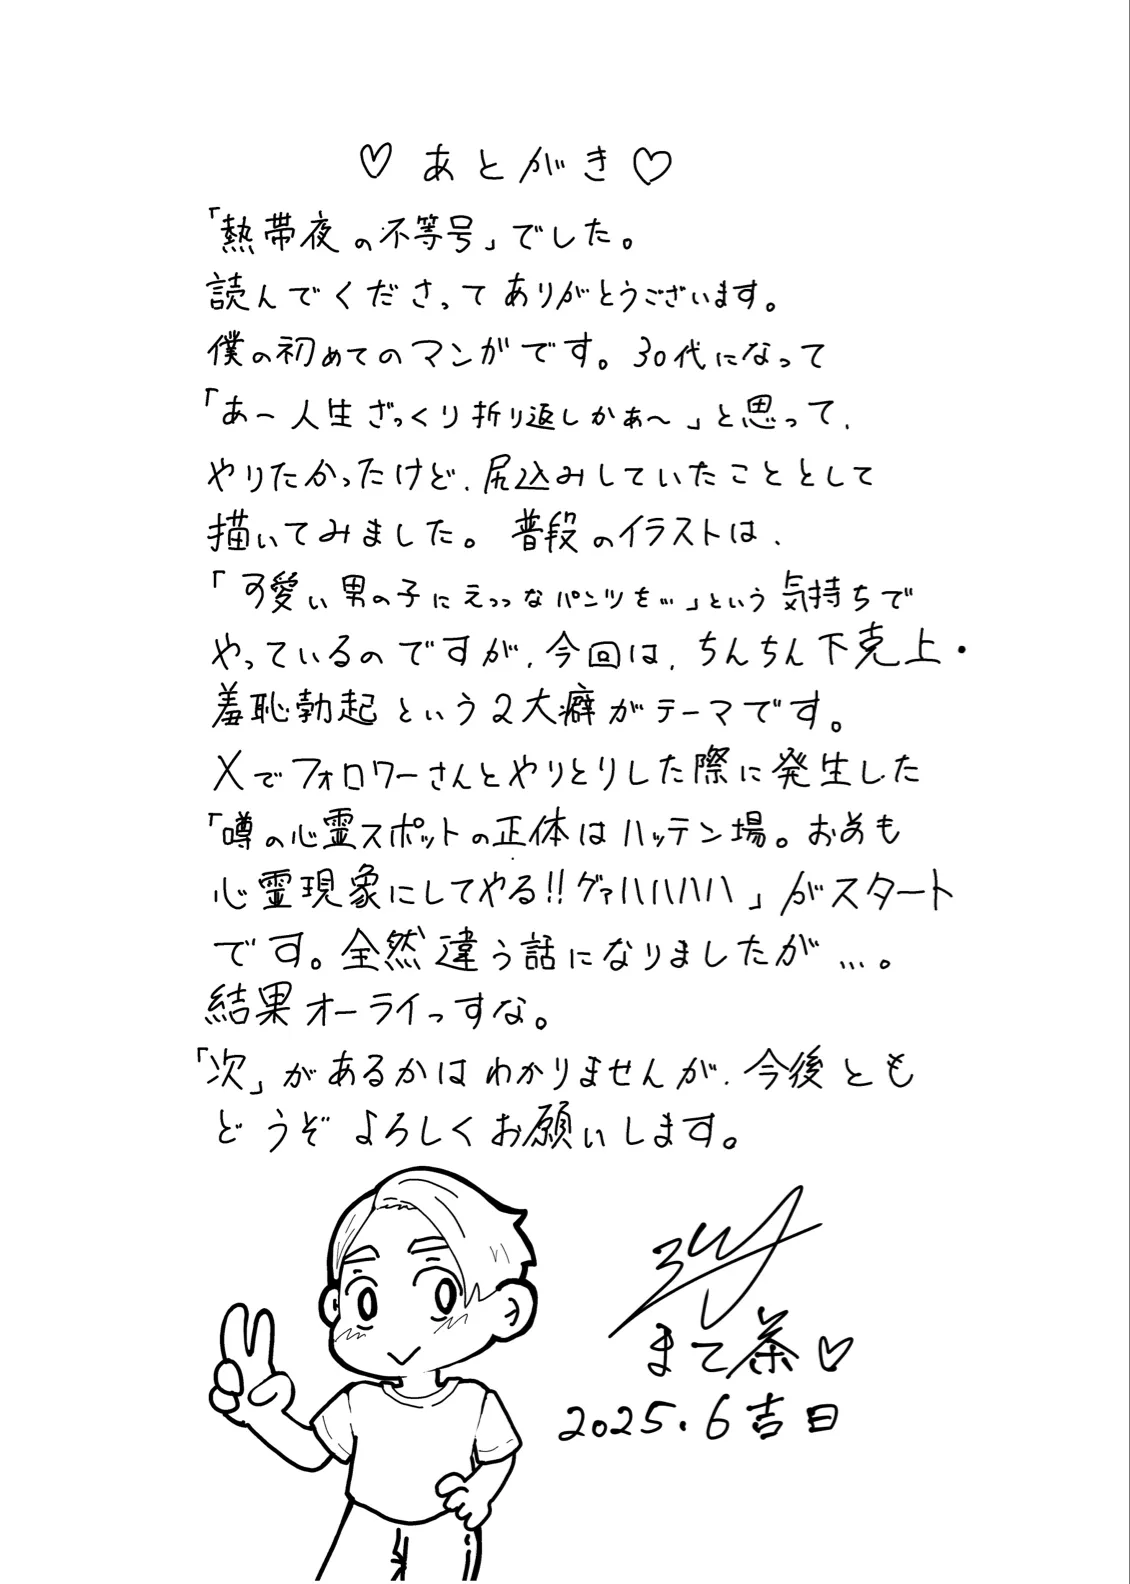 ♡あとがき♡
「熱帯夜の不等号」でした。
読んでくださってありがとうございます。
僕の初めてのマンガです。30代になって
「あー人生ざっくり折り返しかぁ〜」と思って、
やりたかったけど、尻込みしていたこととして
描いてみました。普段のイラストは、
「可愛い男の子にえっっなパンツを…」という気持ちで
やっているのですが、今回は、ちんちん下克上・
羞恥勃起という2大癖がテーマです。
Xでフォロワーさんとやりとりした際に発生した
「噂の心霊スポットの正体はハッテン場。おあも
心霊現象にしてやる!!グァハハハハ」がスタート
です。全然違う話になりましたが…。
結果オーライっすな。
「次」があるかはわかりませんが、今後とも
どうぞよろしくお願いします。
まて茶♡
2025.6吉日